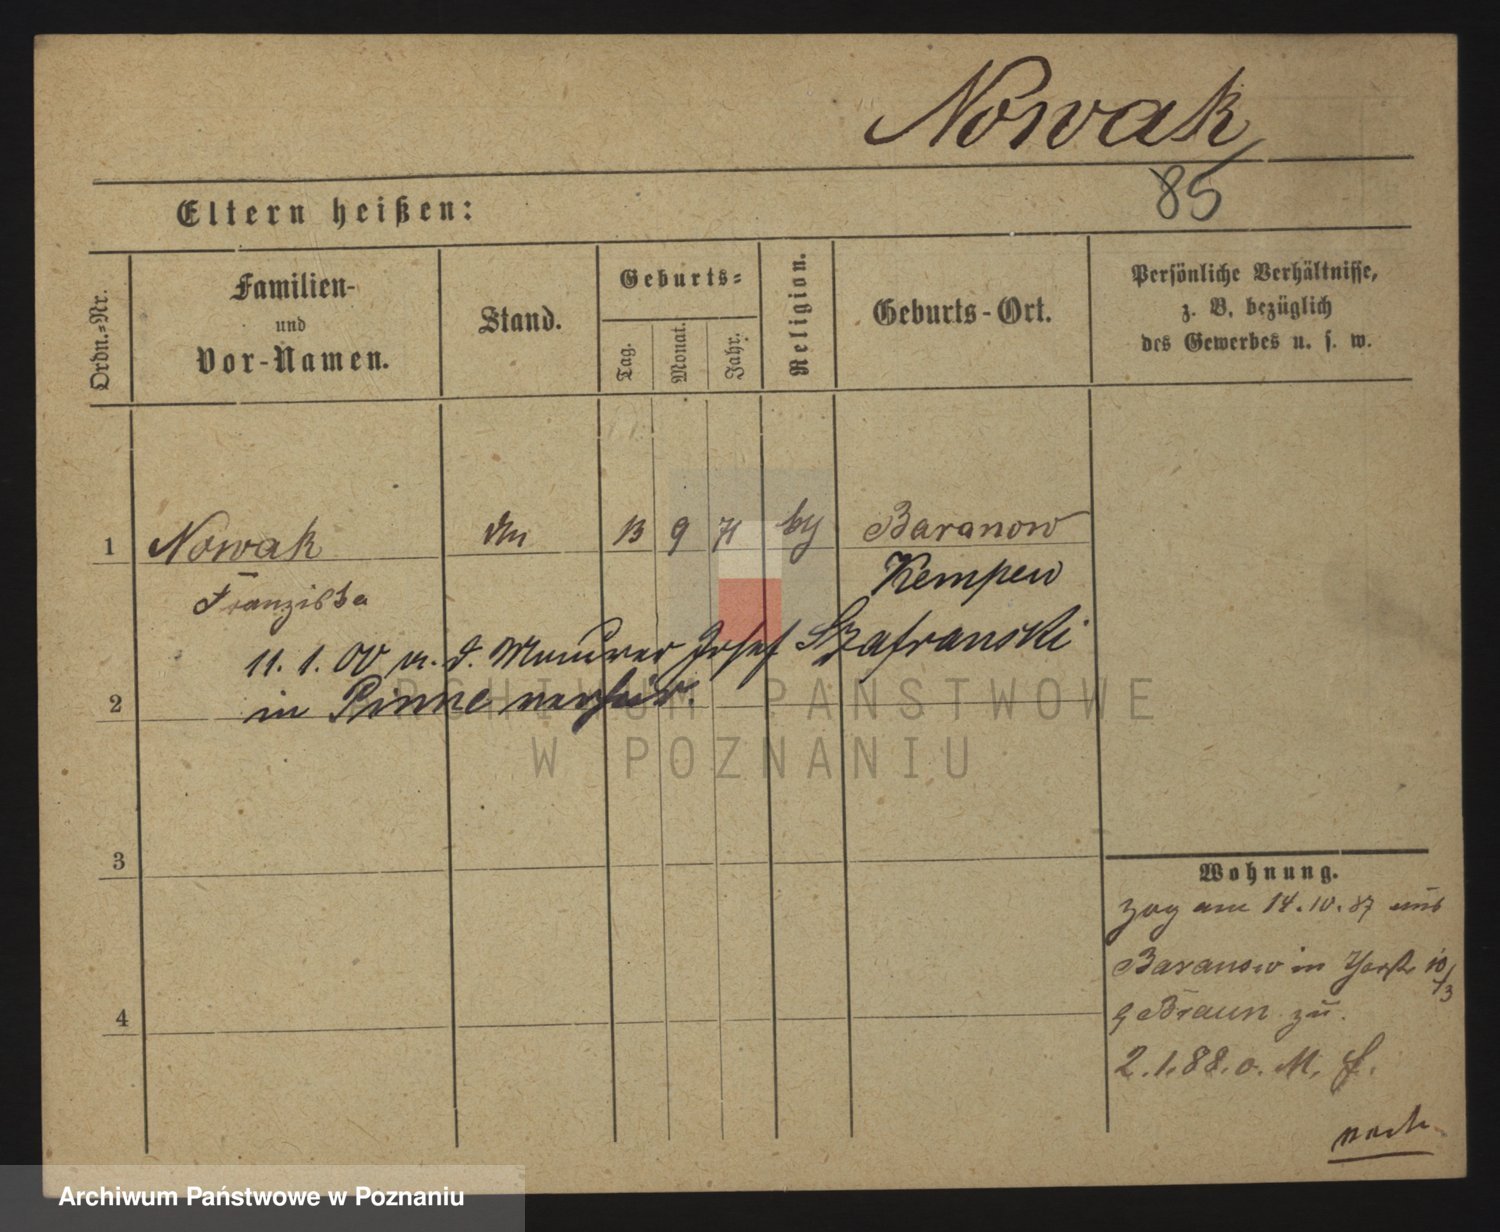 Nowak
85
Eltern heißen:
Ordn.-Nr.
Familien-
und
Vor-Namen.
Stand.
Geburts-
Tag.
Monat.
Jahr.
Religion.
Geburts-Ort.
Persönliche Verhältnisse,
z. B. bezüglich
des Gewerbes u. s. w.
1
Nowak
13 9 71
Baranow
Franziska
Kempen
11. 1. 00 m. d. Maurer Josef Szafranski
2
in Pinne verheir.
ARCHIWUM PAŃSTWOWE
W POZNANIU
3
Wohnung.
zog am 14.10.87 aus
Baranow in
4
Braun zu.
2.1.88. o. M.
noch
Archiwum Państwowe w Poznaniu